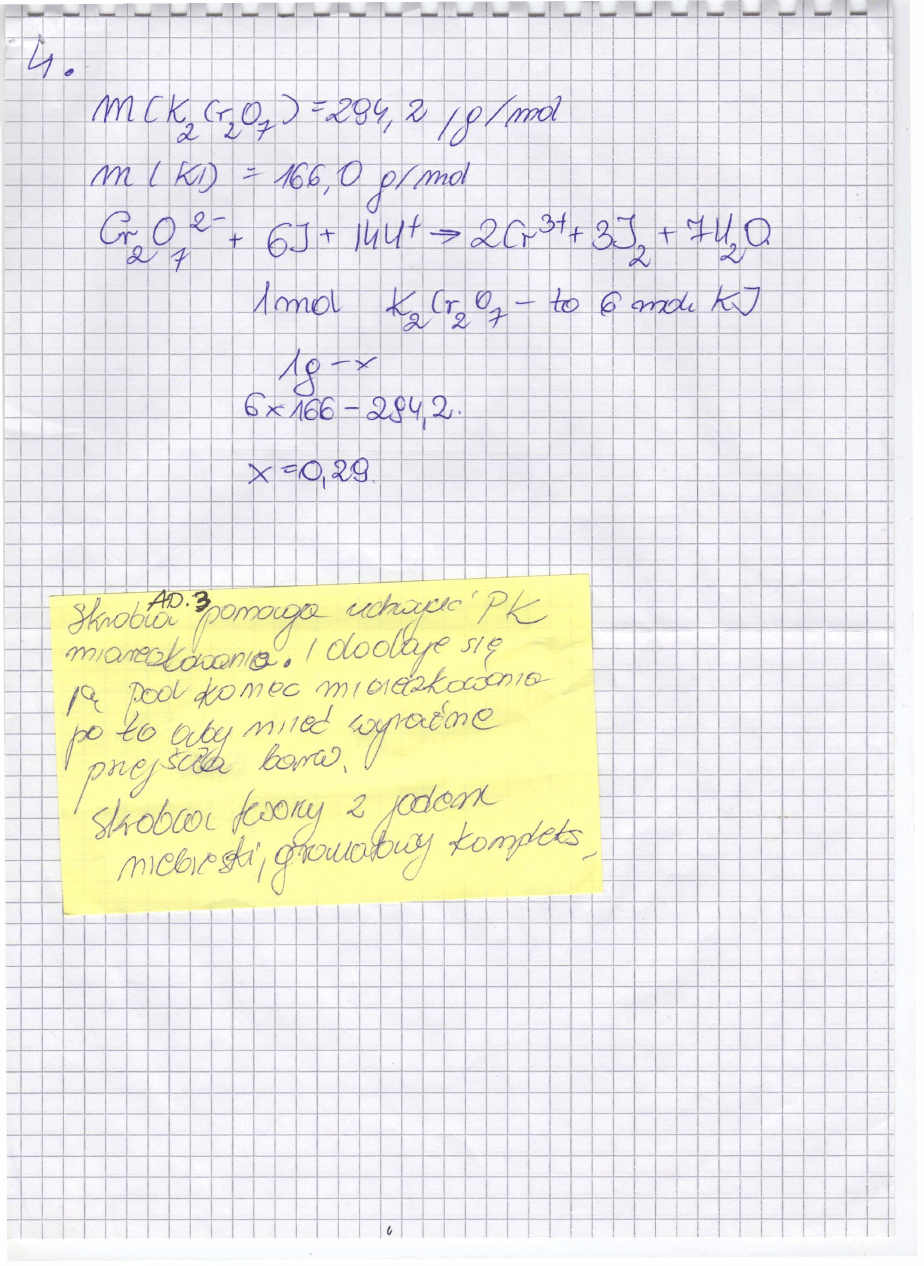 4.
M(K₂Cr₂O₇) = 294,2 g/mol
m(KI) = 166,0 g/mol
Cr₂O₇²⁻ + 6J + 14H⁺ → 2Cr³⁺ + 3J₂ + 7H₂O
1 mol K₂Cr₂O₇ – to 6 mola KJ
1g – x
6 x 166 – 294,2.
x = 0,29.
AD.3
Skrobia pomaga uchwycić PK
miareczkowania. I dodaje się
ją pod koniec miareczkowania
po to aby mieć wyraźne
przejścia barw.
Skrobia tworzy z jodem
niebieski, granatowy kompleks